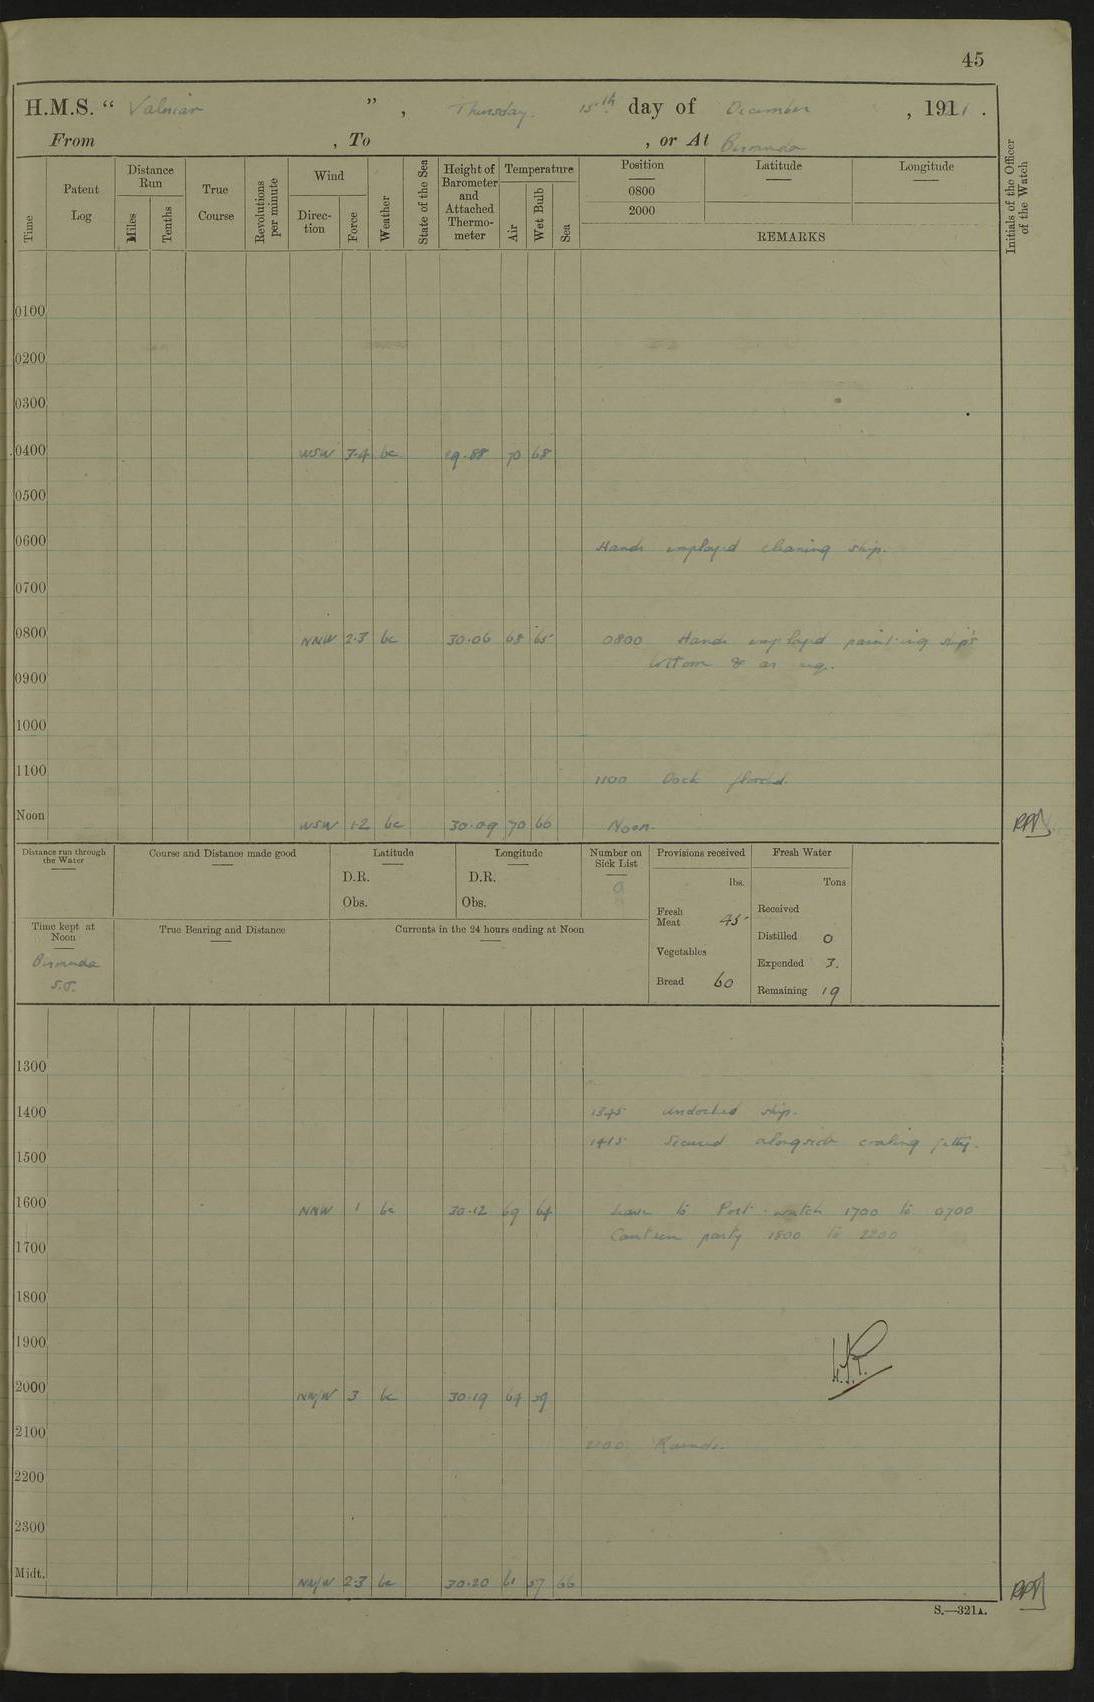 45
H.M.S. “ Valerian ” , Thursday. 15th day of December , 1921 .
From , To , or At Bermuda
Time
Patent Log
Distance Run
Miles
Tenths
True Course
Revolutions per minute
Wind
Direc-tion
Force
Weather
State of the Sea
Height of Barometer and Attached Thermo-meter
Temperature
Air
Wet Bulb
Sea
Position
0800
2000
Latitude
Longitude
REMARKS
Initials of the Officer of the Watch
0100
0200
0300
0400 WSW 3-4 bc 29.88 70 68
0500
0600 Hands employed cleaning ship.
0700
0800 NNW 2-3 bc 30.06 68 65 0800 Hands employed painting ship's
bottom & as req.
0900
1000
1100 1100 Dock flooded.
Noon WSW 1-2 bc 30.09 70 66 Noon.
Distance run through the Water
Course and Distance made good
Latitude
D.R.
Obs.
Longitude
D.R.
Obs.
Number on Sick List
0
Provisions received
lbs.
Fresh Meat 45
Vegetables
Bread 60
Fresh Water
Tons
Received
Distilled 0
Expended 3.
Remaining 19
Time kept at Noon
Bermuda
S.T.
True Bearing and Distance
Currents in the 24 hours ending at Noon
1300
1400 1345 Undocked ship.
1415 Secured alongside coaling jetty.
1500
1600 NNW 1 bc 30.12 69 64 Leave to Port watch 1700 to 0700
Canteen party 1800 to 2200
1700
1800
1900
2000 NN/W 3 bc 30.19 64 59
2100 2100 Rounds.
2200
2300
Midt. NN/W 2-3 bc 30.20 61 57 66
S.—321A.